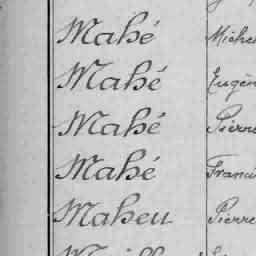 Mahé Michel
Mahé Eugèn
Mahé Pierre
Mahé Franci
Maheu Pierre